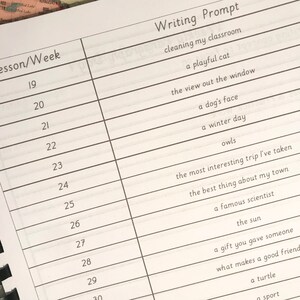 esson/Week Writing Prompt
19 cleaning my classroom
20 a playful cat
21 the view out the window
22 a dog's face
23 a winter day
24 owls
25 the most interesting trip I've taken
26 the best thing about my town
27 a famous scientist
28 the sun
29 a gift you gave someone
30 what makes a good friend
a turtle
a sport